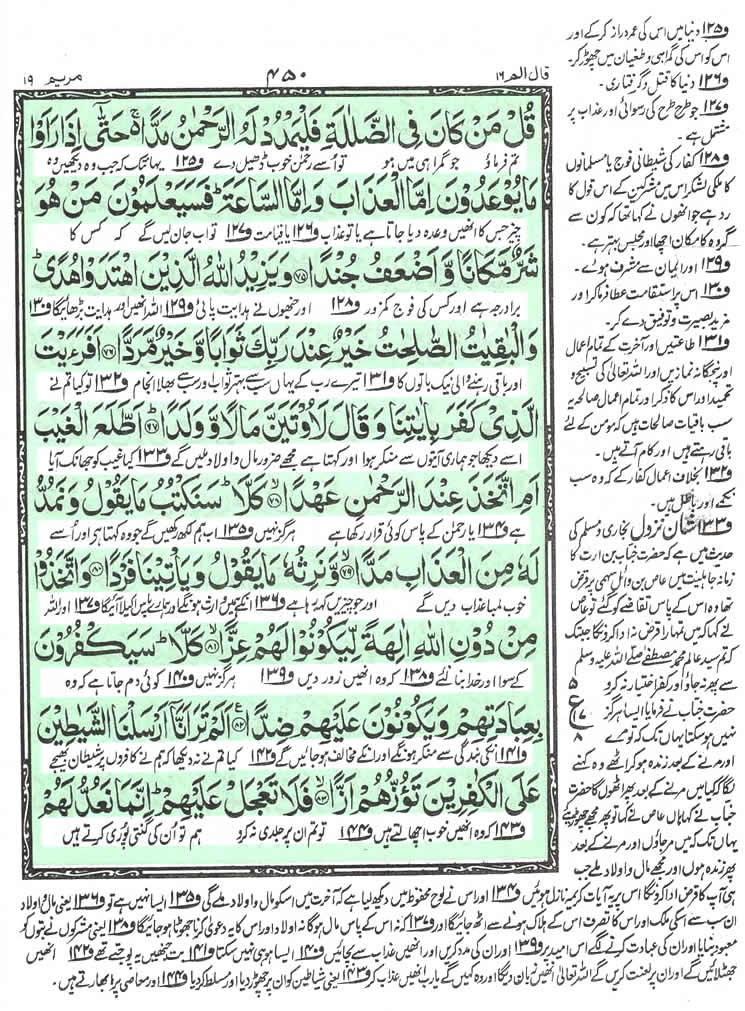 قال الم ١٦
٤٥٠
مريم ١٩
قُلْ مَنْ كَانَ فِي الضَّلٰلَةِ فَلْيَمْدُدْ لَهُ الرَّحْمٰنُ مَدًّا ۚ حَتّٰى اِذَا رَاَوْا
تم فرماؤ جو گمراہی میں ہو تو اُسے رحمٰن خوب ڈھیل دے ف۱۲۵ یہاں تک کہ جب وہ دیکھیں وہ
مَا يُوْعَدُوْنَ اِمَّا الْعَذَابَ وَ اِمَّا السَّاعَةَ ؕ فَسَيَعْلَمُوْنَ مَنْ هُوَ
چیز جس کا انھیں وعدہ دیا جاتا ہے یا تو عذاب ف۱۲۶ یا قیامت ف۱۲۷ تو اب جان لیں گے کہ کس کا
شَرٌّ مَّكَانًا وَّ اَضْعَفُ جُنْدًا ۷۵ وَ يَزِيْدُ اللّٰهُ الَّذِيْنَ اهْتَدَوْا هُدًى ؕ
برا درجہ ہے اور کس کی فوج کمزور ف۱۲۸ اور جنھوں نے ہدایت پائی ف۱۲۹ اللہ انھیں اور ہدایت بڑھائیگا ف۱۳۰
وَ الْبٰقِيٰتُ الصّٰلِحٰتُ خَيْرٌ عِنْدَ رَبِّكَ ثَوَابًا وَّ خَيْرٌ مَّرَدًّا ۷۶ اَفَرَءَيْتَ
اور باقی رہنے والی نیک باتوں کا ف۱۳۱ تیرے رب کے یہاں سب سے بہتر ثواب اور سب سے بھلا انجام ف۱۳۲ تو کیا تم نے
الَّذِيْ كَفَرَ بِاٰيٰتِنَا وَ قَالَ لَاُوْتَيَنَّ مَالًا وَّ وَلَدًا ۷۷ اَطَّلَعَ الْغَيْبَ
اسے دیکھا جو ہماری آیتوں سے منکر ہوا اور کہتا ہے مجھے ضرور مال و اولاد ملیں گے ف۱۳۳ کیا غیب کو جھانک آیا
اَمِ اتَّخَذَ عِنْدَ الرَّحْمٰنِ عَهْدًا ۷۸ كَلَّا ؕ سَنَكْتُبُ مَا يَقُوْلُ وَ نَمُدُّ
ہے ف۱۳۴ یا رحمٰن کے پاس کوئی قرار رکھا ہے ہرگز نہیں ف۱۳۵ اب ہم لکھ رکھیں گے جو وہ کہتا ہے اور اُسے
لَهٗ مِنَ الْعَذَابِ مَدًّا ۷۹ وَّ نَرِثُهٗ مَا يَقُوْلُ وَ يَاْتِيْنَا فَرْدًا ۸۰ وَ اتَّخَذُوْا
خوب لمبا عذاب دیں گے اور جو چیزیں کہہ رہا ہے ف۱۳۶ انکے ہمیں وارث ہونگے اور ہمارے پاس اکیلا آئیگا ف۱۳۷ اور اللہ
مِنْ دُوْنِ اللّٰهِ اٰلِهَةً لِّيَكُوْنُوْا لَهُمْ عِزًّا ۸۱ كَلَّا ؕ سَيَكْفُرُوْنَ
کے سوا اور خدا بنا لئے ف۱۳۸ کہ وہ انھیں زور دیں ف۱۳۹ ہرگز نہیں ف۱۴۰ کوئی دم جاتا ہے کہ وہ
بِعِبَادَتِهِمْ وَ يَكُوْنُوْنَ عَلَيْهِمْ ضِدًّا ۸۲ اَلَمْ تَرَ اَنَّاۤ اَرْسَلْنَا الشَّيٰطِيْنَ
ف۱۴۱ انکی بندگی سے منکر ہونگے اور انکے مخالف ہو جائیں گے ف۱۴۲ کیا تم نے نہ دیکھا کہ ہم نے کافروں پر شیطان بھیجے
عَلَى الْكٰفِرِيْنَ تَؤُزُّهُمْ اَزًّا ۸۳ فَلَا تَعْجَلْ عَلَيْهِمْ ؕ اِنَّمَا نَعُدُّ لَهُمْ
ف۱۴۳ کہ وہ انھیں خوب اچھالتے ہیں ف۱۴۴ تو تم ان پر جلدی نہ کرو ہم تو اُن کی گنتی پوری کرتے ہیں
ف۱۲۵ دنیا میں اس کی عمر دراز کرکے اور
اس کو اس کی گمراہی و طغیان میں چھوڑ کر۔
ف۱۲۶ دنیا کا قتل و گرفتاری۔
ف۱۲۷ جو طرح طرح کی رسوائی اور عذاب پر
مشتمل ہے۔
ف۱۲۸ کفار کی شیطانی فوج یا مسلمانوں
کا ملکی لشکر اس میں مشرکین کے اس قول کا
رد ہے جو انھوں نے کہا تھا کہ کون سے
گروہ کا مکان اچھا اور مجلس بہتر ہے۔
ف۱۲۹ اور ایمان سے مشرف ہوئے۔
ف۱۳۰ اس پر استقامت عطا فرما کر اور
مزید بصیرت و توفیق دے کر۔
ف۱۳۱ طاعتیں اور آخرت کے تمام اعمال
اور پنجگانہ نمازیں اور اللہ تعالیٰ کی تسبیح و
تحمید اور اس کا ذکر اور تمام اعمال صالحہ یہ
سب باقیات صالحات ہیں کہ مومن کے لئے
باقی رہتے ہیں اور کام آتے ہیں۔
ف۱۳۲ بخلاف اعمال کفار کے کہ وہ سب
نکمے اور باطل ہیں۔
ف۱۳۳ شان نزول بخاری و مسلم کی
حدیث میں ہے کہ حضرت خباب بن ارت کا
زمانہ جاہلیت میں عاص بن وائل سہمی پر قرض
تھا وہ اس کے پاس تقاضے کو گئے تو عاص
نے کہا کہ میں تمہارا قرض نہ ادا کروں گا جب تک
کہ تم سید عالم محمد مصطفےٰ صلی اللہ علیہ وسلم
سے پھر نہ جاؤ اور کفر اختیار نہ کرو
حضرت خباب نے فرمایا ایسا ہرگز
نہیں ہو سکتا یہاں تک کہ تو مرے
اور مرنے کے بعد زندہ ہو کر اٹھے وہ کہنے
لگا کیا میں مرنے کے بعد پھر اٹھوں گا حضرت
خباب نے کہا ہاں عاص نے کہا تو پھر مجھے چھوڑیئے
یہاں تک کہ میں مر جاؤں اور مرنے کے بعد
پھر زندہ ہوں اور مجھے مال و اولاد ملے جب
ع
۵
۱۷
۸
ہی آپ کا قرض ادا کروں گا اس پر یہ آیات کریمہ نازل ہوئیں ف۱۳۴ اور اس نے لوح محفوظ میں دیکھ لیا ہے کہ آخرت میں اسکو مال و اولاد ملے گی ف۱۳۵ ایسا نہیں ہے تو ف۱۳۶ یعنی مال و اولاد
ان سب سے اسکی ملک اور اس کا تصرف اس کے ہلاک ہونے سے اٹھ جائیگا اور ف۱۳۷ کہ نہ اس کے پاس مال ہوگا نہ اولاد اور اس کا یہ دعویٰ کرنا جھوٹا ہو جائیگا ف۱۳۸ یعنی مشرکوں نے بتوں کو
معبود بنایا اور ان کی عبادت کرنے لگے اس امید پر ف۱۳۹ اور ان کی مدد کریں اور انھیں عذاب سے بچائیں ف۱۴۰ ایسا ہو ہی نہیں سکتا ف۱۴۱ بت جنھیں یہ پوجتے تھے ف۱۴۲ انھیں
جھٹلائیں گے اور ان پر لعنت کریں گے اللہ تعالیٰ انھیں زبان دیگا اور وہ کہیں گے یارب انھیں عذاب کر ف۱۴۳ یعنی شیاطین کو ان پر چھوڑ دیا اور مسلط کر دیا ف۱۴۴ اور معاصی پر ابھارتے ہیں۔